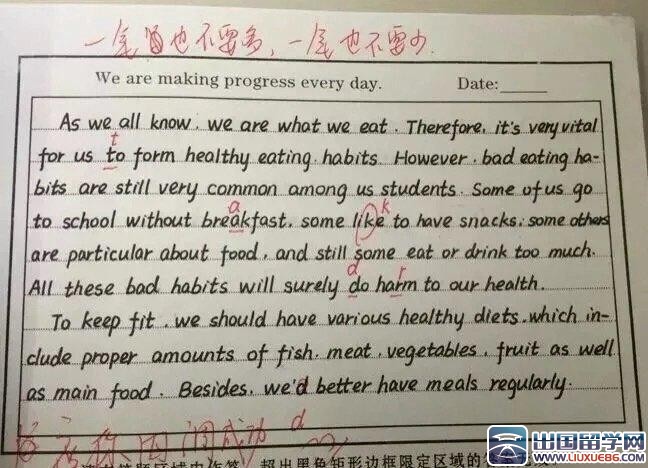 一笔也不要多，一笔也不要少.
We are making progress every day. Date:
As we all know, we are what we eat. Therefore, it's very vital
t
for us to form healthy eating habits. However, bad eating ha-
bits are still very common among us students. Some of us go
a k
to school without breakfast, some like to have snacks; some others
are particular about food, and still some eat or drink too much.
d r
All these bad habits will surely do harm to our health.
To keep fit, we should have various healthy diets, which in-
clude proper amounts of fish, meat, vegetables, fruit as well
as main food. Besides, we'd better have meals regularly.
d
成功
超出黑色矩形边框限定区域的
出国留学网
WWW.LIUXUE86.COM